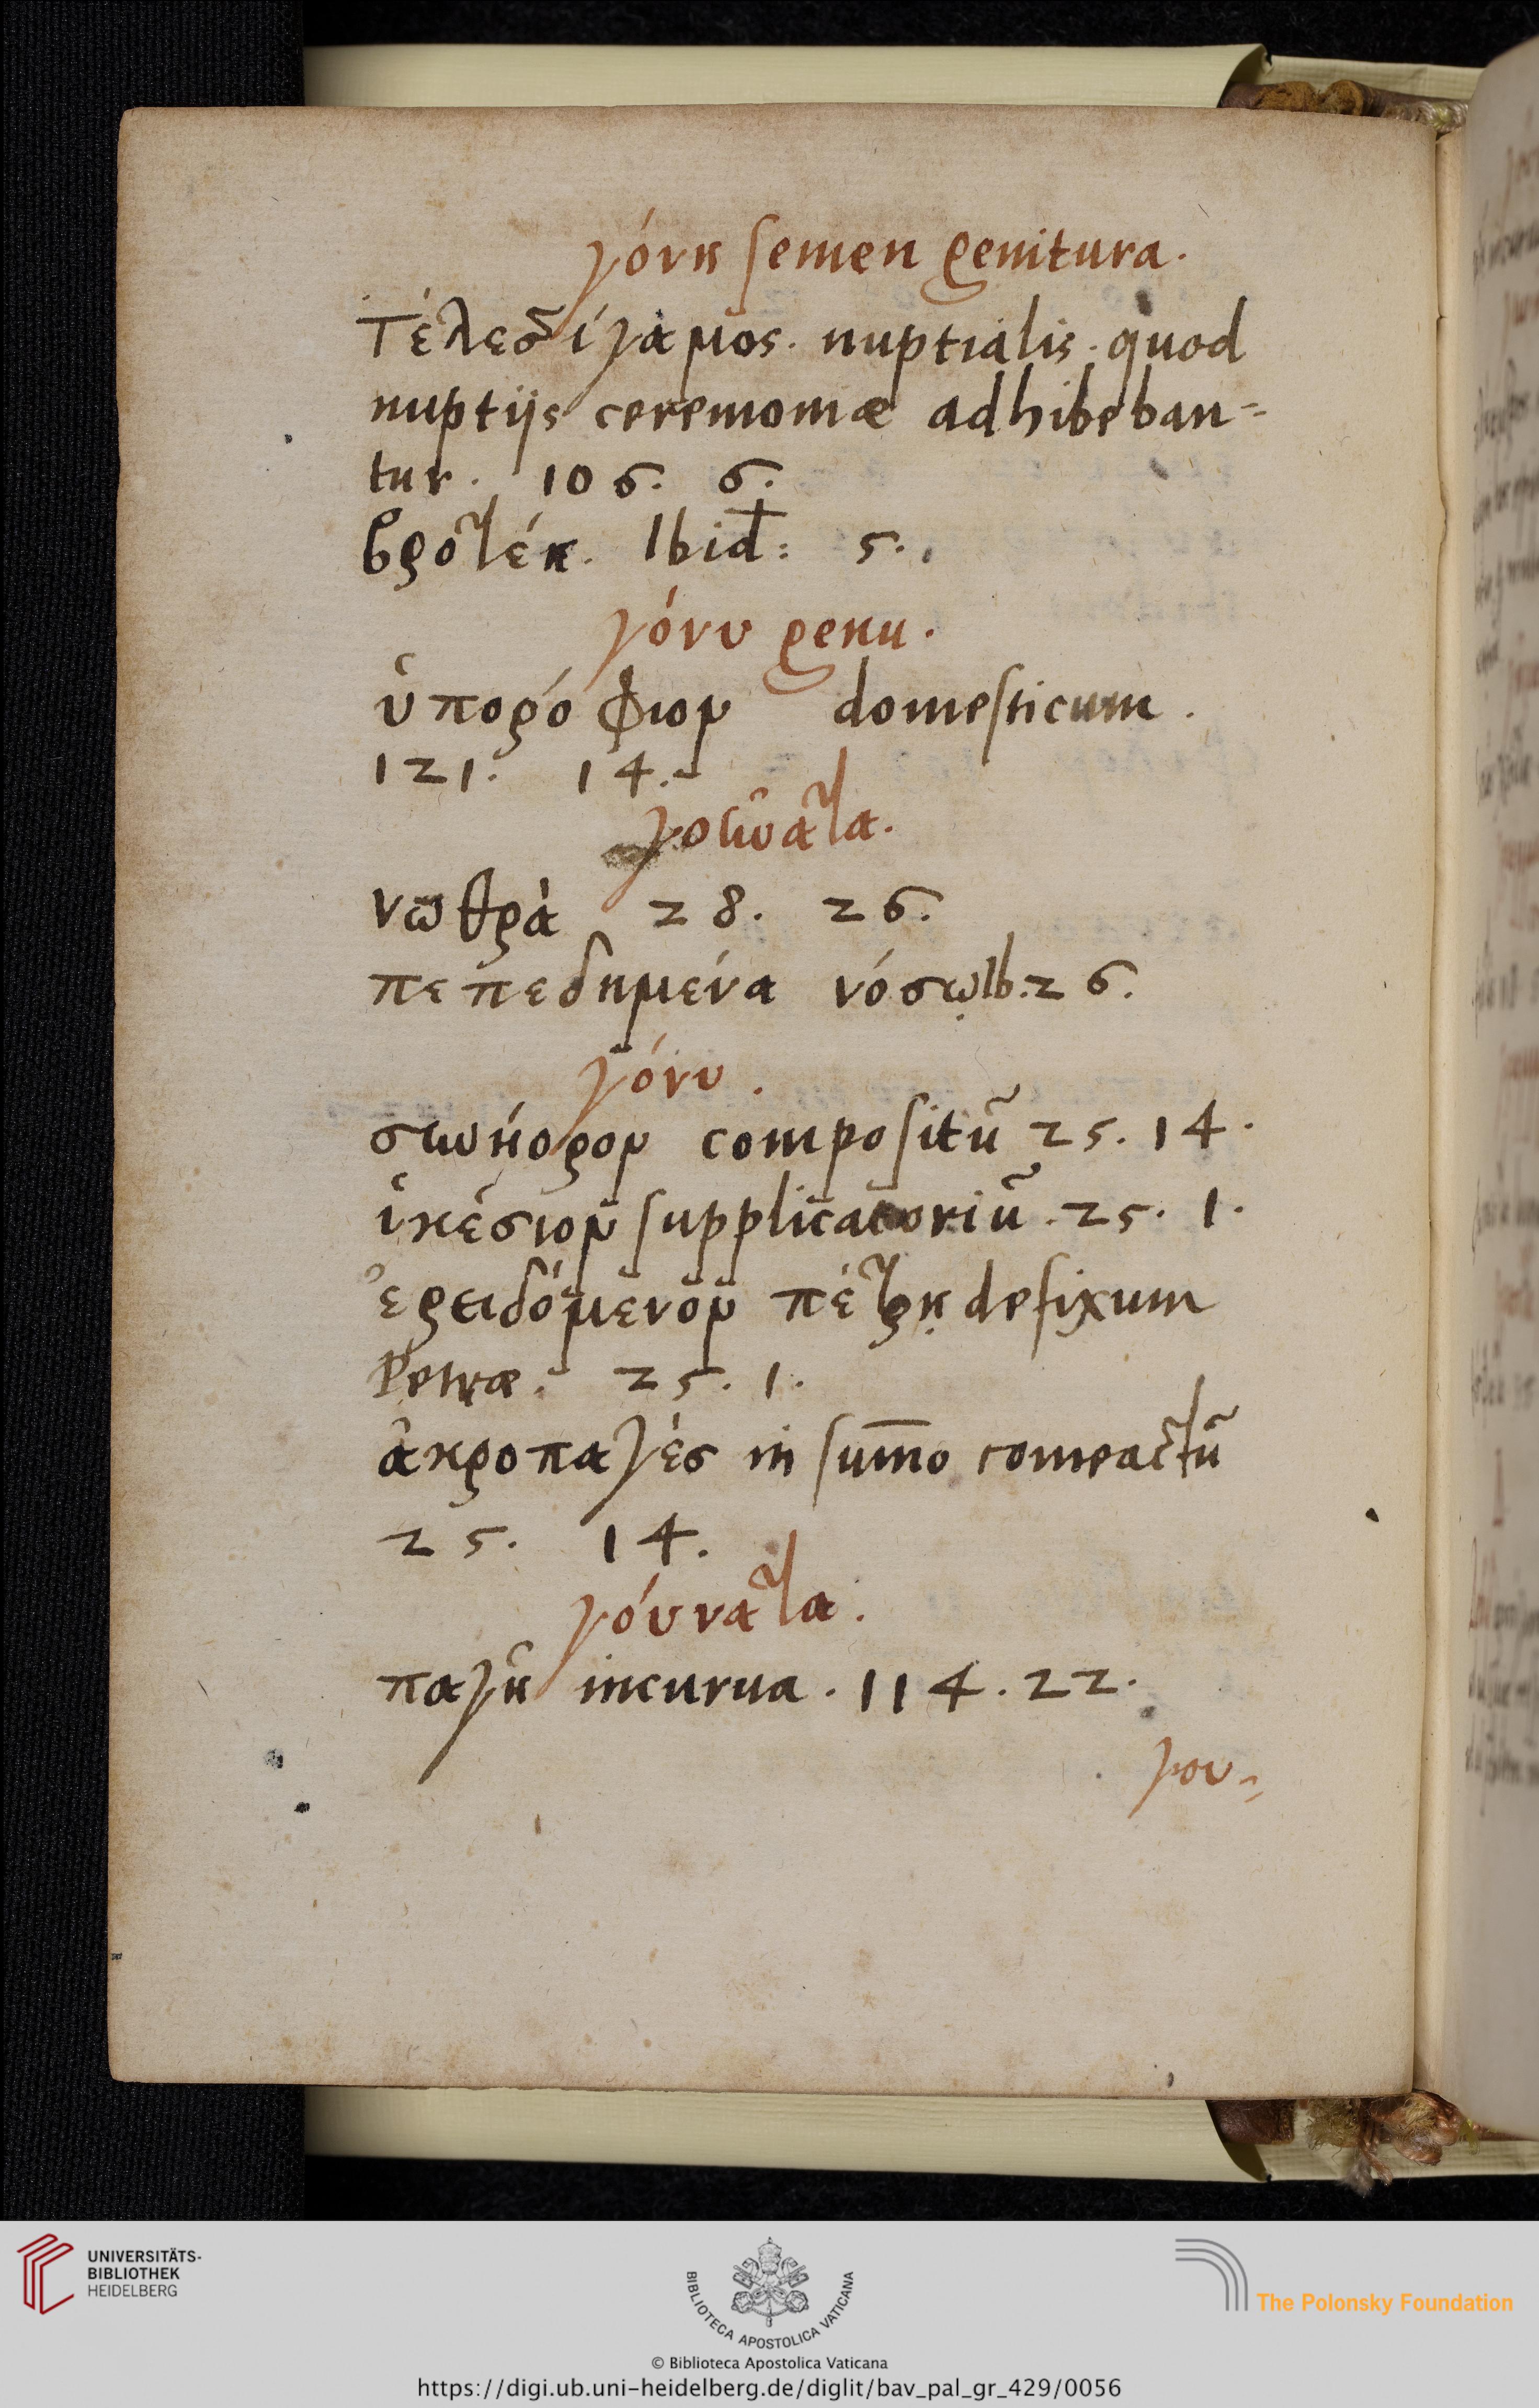 γόνη semen genitura.
Τελεσσίγαμος. nuptialis. quod
nuptijs ceremoniæ adhibeban=
tur. 106. 6.
βροτέη. Ibid: 5.
γόνυ genu.
ὑπορόφιον domesticum.
121. 14.
γούνατα.
νωθρὰ 28. 26.
πεπεδημένα νόσῳ Ib. 26.
γόνυ.
συνήορον compositũ 25. 14.
ἱκέσιον supplicatoriũ. 25. 1.
ἐρειδόμενον πέτρῃ defixum
Petræ. 25. 1.
ἀκροπαγὲς in sum̅o compactũ
25. 14.
γόυνατα.
παγῆ incurua. 114. 22.
γου=
UNIVERSITÄTS-
BIBLIOTHEK
HEIDELBERG
BIBLIOTECA APOSTOLICA VATICANA
The Polonsky Foundation
© Biblioteca Apostolica Vaticana
https://digi.ub.uni-heidelberg.de/diglit/bav_pal_gr_429/0056